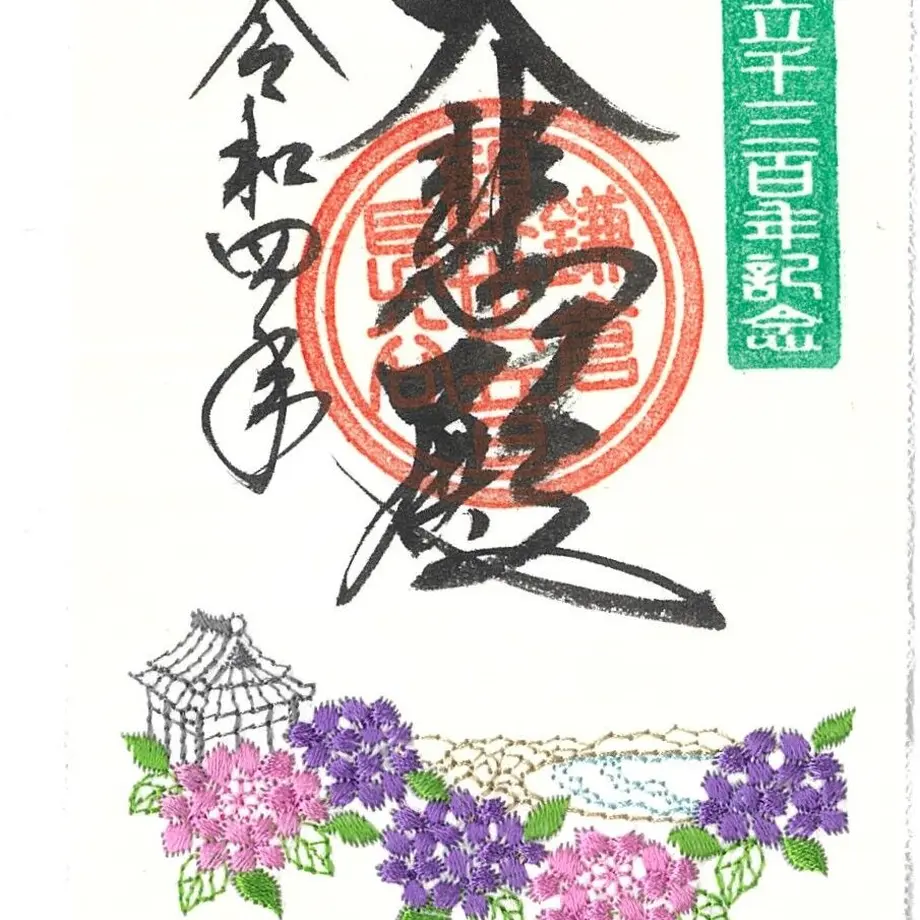 立千三百年記念
大悲殿
鎌倉
長谷
令和四年